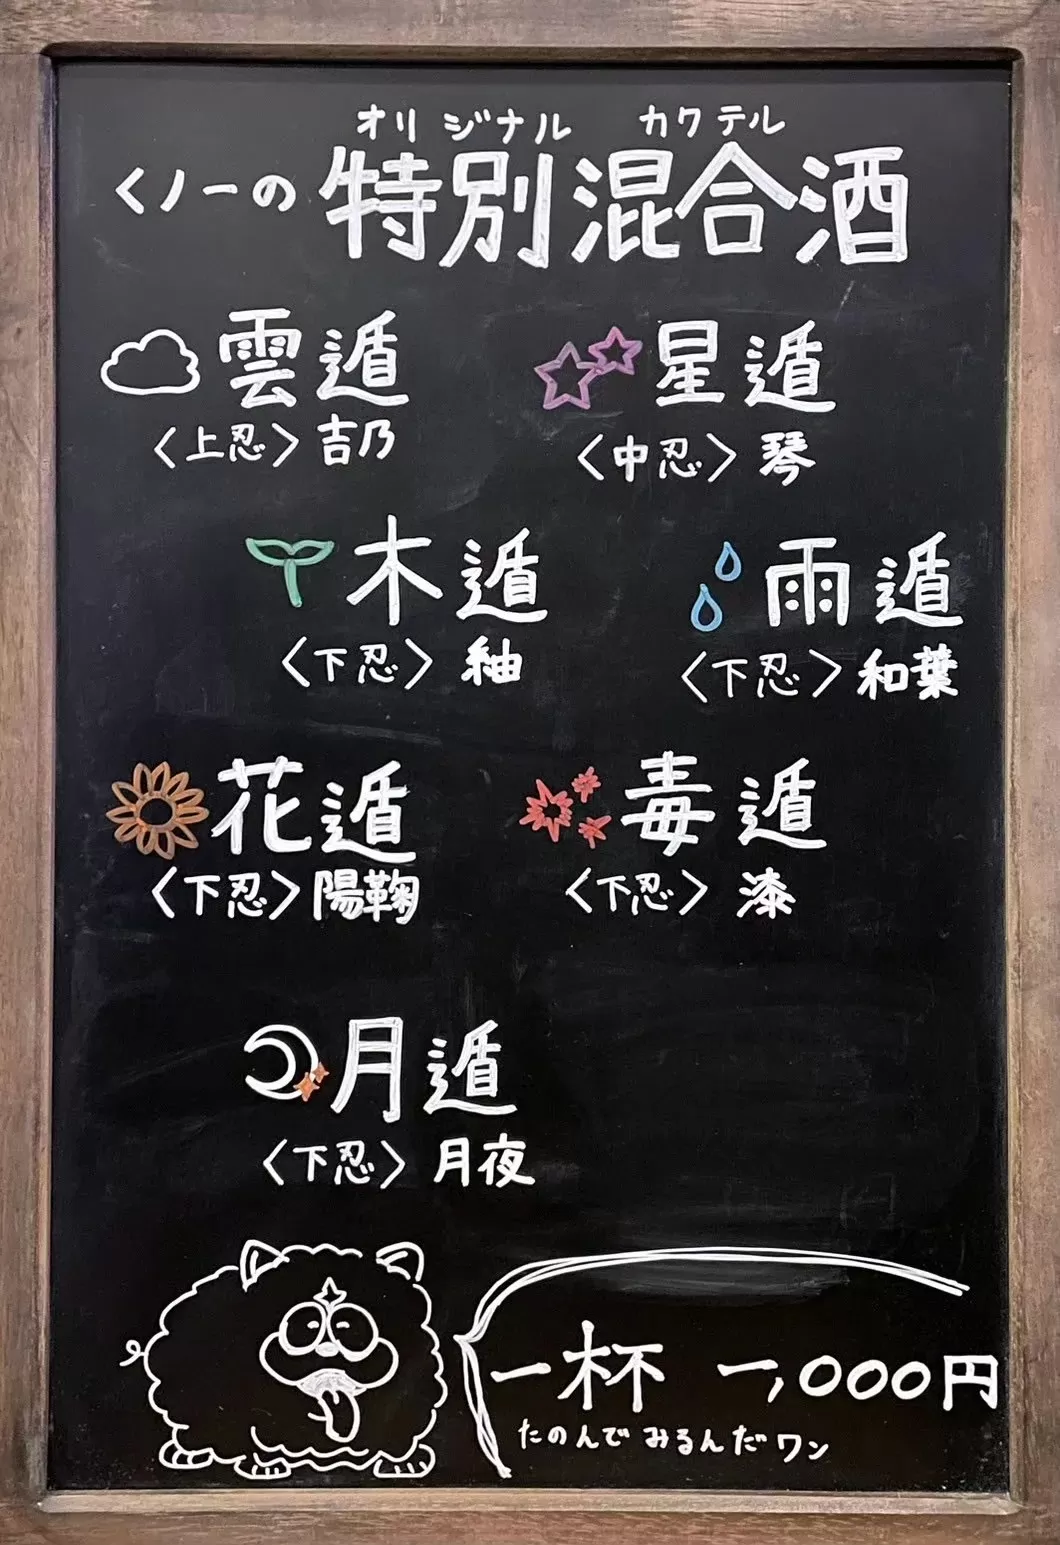 オリジナル カクテル
くノ一の特別混合酒
雲遁
〈上忍〉吉乃
星遁
〈中忍〉琴
木遁
〈下忍〉紬
雨遁
〈下忍〉和葉
花遁
〈下忍〉陽鞠
毒遁
〈下忍〉漆
月遁
〈下忍〉月夜
一杯 一,000円
たのんでみるんだワン